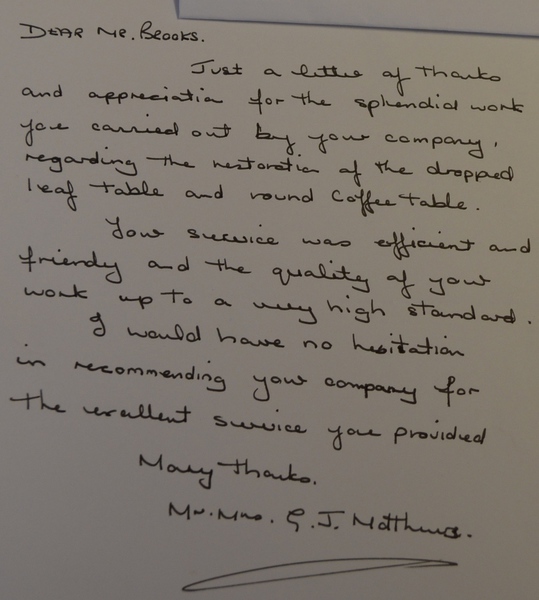 DEAR MR. BROOKS.
Just a letter of thanks
and appreciation for the splendid work
you carried out by your company,
regarding the restoration of the dropped
leaf table and round coffee table.
Your service was efficient and
friendly and the quality of your
work up to a very high standard.
I would have no hesitation
in recommending your company for
the excellent service you provided
Many thanks.
Mr. Mrs. G. J. Matthews.